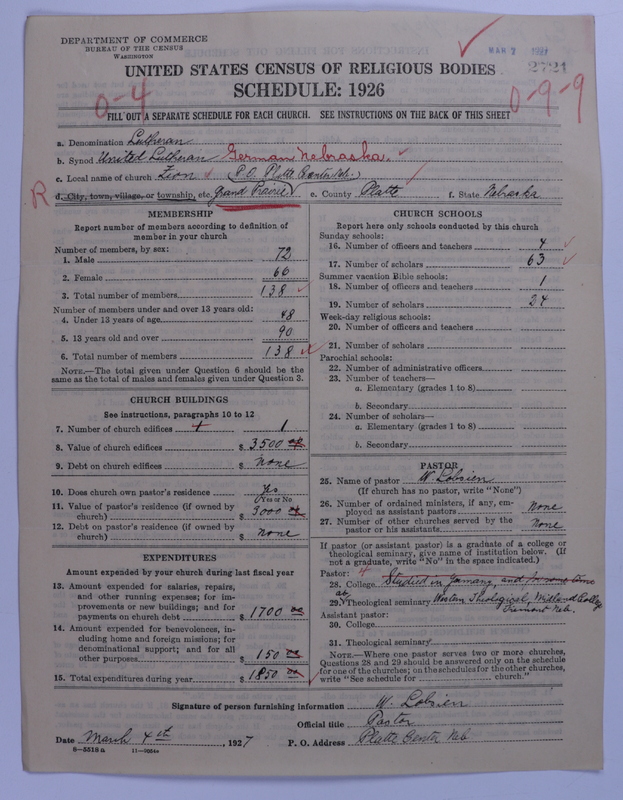 DEPARTMENT OF COMMERCE
BUREAU OF THE CENSUS
WASHINGTON
MAR 2 1927
2721
UNITED STATES CENSUS OF RELIGIOUS BODIES
SCHEDULE: 1926
0-4
0-9-9
FILL OUT A SEPARATE SCHEDULE FOR EACH CHURCH. SEE INSTRUCTIONS ON THE BACK OF THIS SHEET
a. Denomination Lutheran
b. Synod United Lutheran German Nebraska.
c. Local name of church Zion (P.O. Platte Center Neb.)
R
d. City, town, village, or township, etc. Grand Prairie e. County Platte f. State Nebraska
MEMBERSHIP
Report number of members according to definition of member in your church
Number of members, by sex:
1. Male 72
2. Female 66
3. Total number of members 138
Number of members under and over 13 years old:
4. Under 13 years of age 48
5. 13 years old and over 90
6. Total number of members 138
NOTE.—The total given under Question 6 should be the same as the total of males and females given under Question 3.
CHURCH BUILDINGS
See instructions, paragraphs 10 to 12
7. Number of church edifices 1
8. Value of church edifices $ 3500
9. Debt on church edifices $ None
10. Does church own pastor's residence Yes
(Yes or No)
11. Value of pastor's residence (if owned by church) $ 3000
12. Debt on pastor's residence (if owned by church) $ None
EXPENDITURES
Amount expended by your church during last fiscal year
13. Amount expended for salaries, repairs, and other running expenses; for improvements or new buildings; and for payments on church debt $ 1700
14. Amount expended for benevolences, including home and foreign missions; for denominational support; and for all other purposes $ 150
15. Total expenditures during year $ 1850
CHURCH SCHOOLS
Report here only schools conducted by this church
Sunday schools:
16. Number of officers and teachers 4
17. Number of scholars 63
Summer vacation Bible schools:
18. Number of officers and teachers 1
19. Number of scholars 24
Week-day religious schools:
20. Number of officers and teachers
21. Number of scholars
Parochial schools:
22. Number of administrative officers
23. Number of teachers—
a. Elementary (grades 1 to 8)
b. Secondary
24. Number of scholars—
a. Elementary (grades 1 to 8)
b. Secondary
PASTOR
25. Name of pastor W. Lobsien
(If church has no pastor, write "None")
26. Number of ordained ministers, if any, employed as assistant pastors None
27. Number of other churches served by the pastor or his assistants None
If pastor (or assistant pastor) is a graduate of a college or theological seminary, give name of institution below. (If not a graduate, write "No" in the space indicated.)
Pastor:
28. College Studied in Germany, and
29. Theological seminary Western Theological, Midland College
Fremont Neb.
Assistant pastor:
30. College
31. Theological seminary
NOTE.—Where one pastor serves two or more churches, Questions 28 and 29 should be answered only on the schedule for one of the churches; on the schedules for the other churches, write "See schedule for church."
Signature of person furnishing information W. Lobsien
Official title Pastor
Date March 4th, 1927 P. O. Address Platte Center Neb
8—5518 a 11—5054